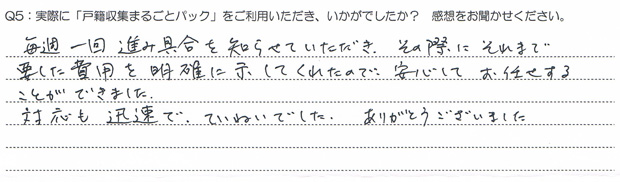 Q5：実際に「戸籍収集まるごとパック」をご利用いただき、いかがでしたか？　感想をお聞かせください。
毎週一回進み具合を知らせていただき、その際にそれまで
要した費用を明確に示してくれたので、安心してお任せする
ことができました。
対応も迅速で、ていねいでした。ありがとうございました